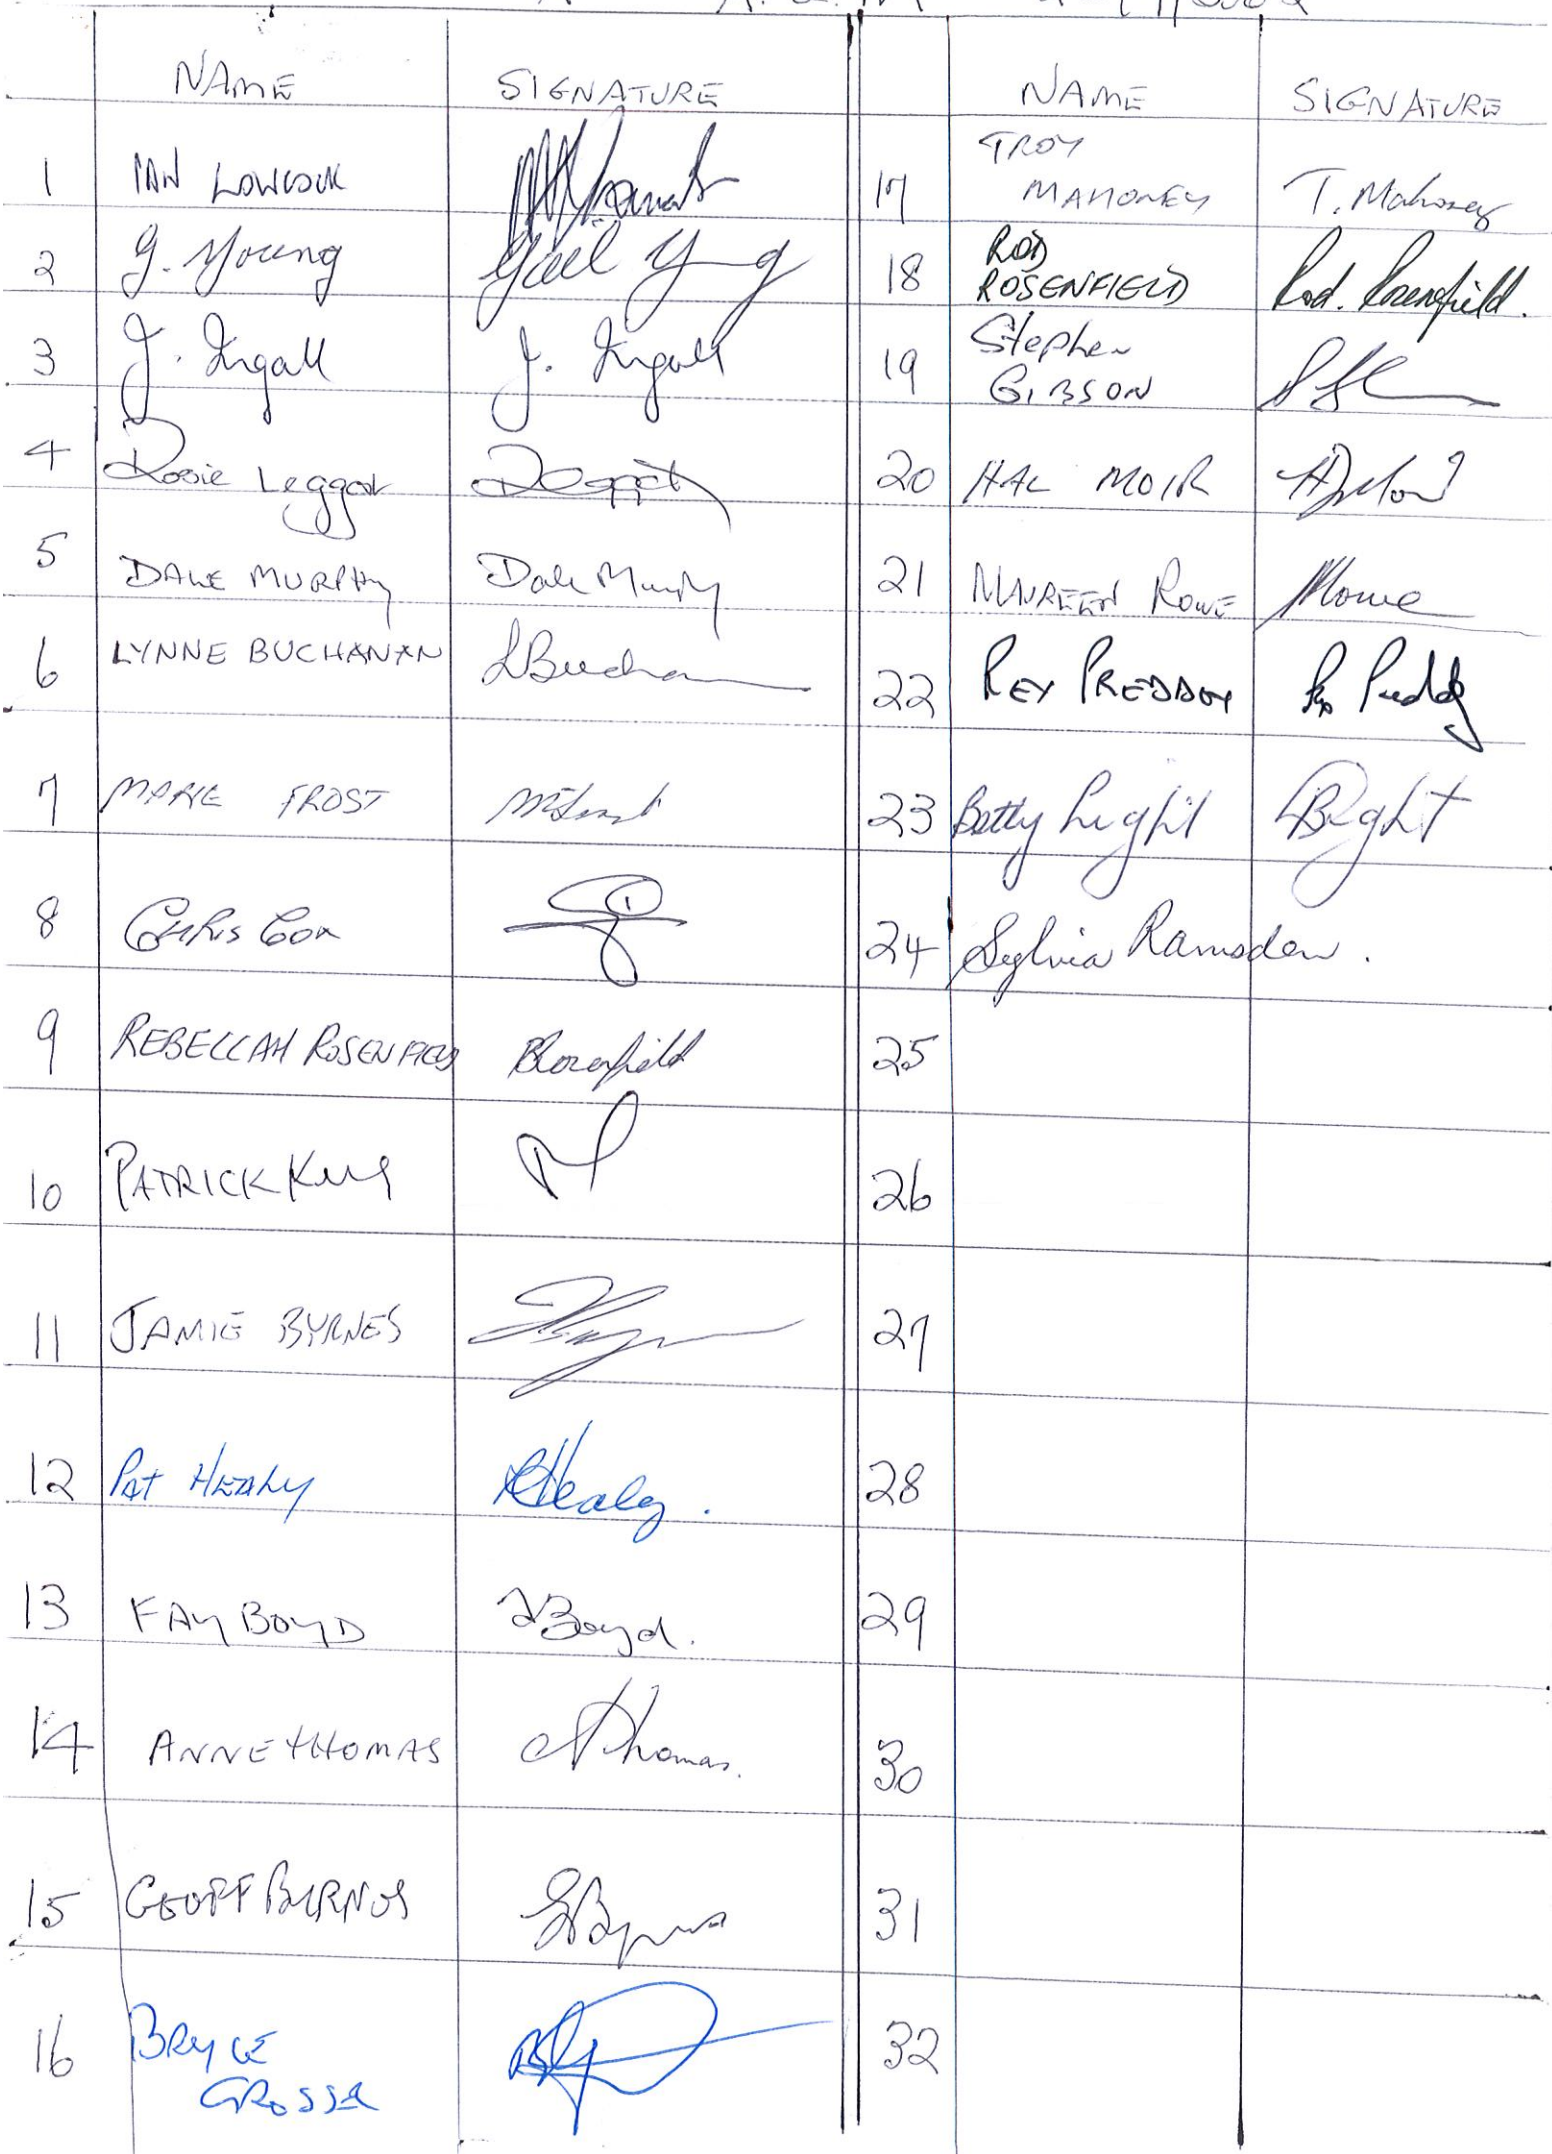 NAME SIGNATURE NAME SIGNATURE
1 IAN LOWCOCK
2 G. Young Gael Young
3 J. Ingall J. Ingall
4 Rosie Leggat
5 DALE MURPHY Dale Murphy
6 LYNNE BUCHANAN LBuchan
7 MARIE FROST
8 Chris Cox
9 REBECCAH ROSENFIELD Rosenfield
10 PATRICK KING
11 JAMIE BYRNES
12 PAT HEALY PHealy.
13 FAY BOYD FBoyd.
14 ANNE THOMAS AThomas.
15 GEOFF BYRNES GByrnes
16 BRYCE
GROSSE
17 TROY
MAHONEY T. Mahoney
18 ROD
ROSENFIELD Rod. Rosenfield.
19 Stephen
GIBSON
20 HAL MOIR
21 MAUREEN ROWE MRowe
22 REX PREDDEY
23 Betty Light BLight
24 Sylvia Ramsden.
25
26
27
28
29
30
31
32